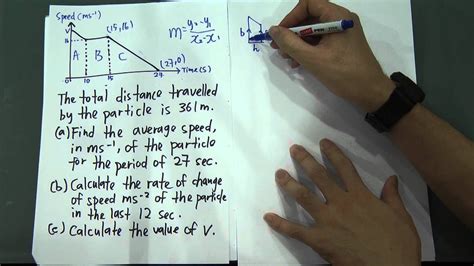 Speed (ms⁻¹)
(15, 16)
m = y₂-y₁
x₂-x₁
V
16
A B C
(27,0)
0 10 15 27 Time (s)
The total distance travelled
by the particle is 361m.
(a) Find the average speed,
in ms⁻¹, of the particle
for the period of 27 sec.
(b) Calculate the rate of change
of speed ms⁻² of the particle
in the last 12 sec.
(c) Calculate the value of V.
b
h